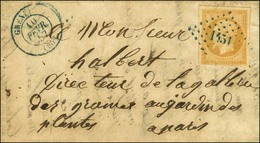 GRANV
10
FEVR
1451
Monsieur
halbert
Directeur de la gallerie
des graines au jardin des
plantes
a paris